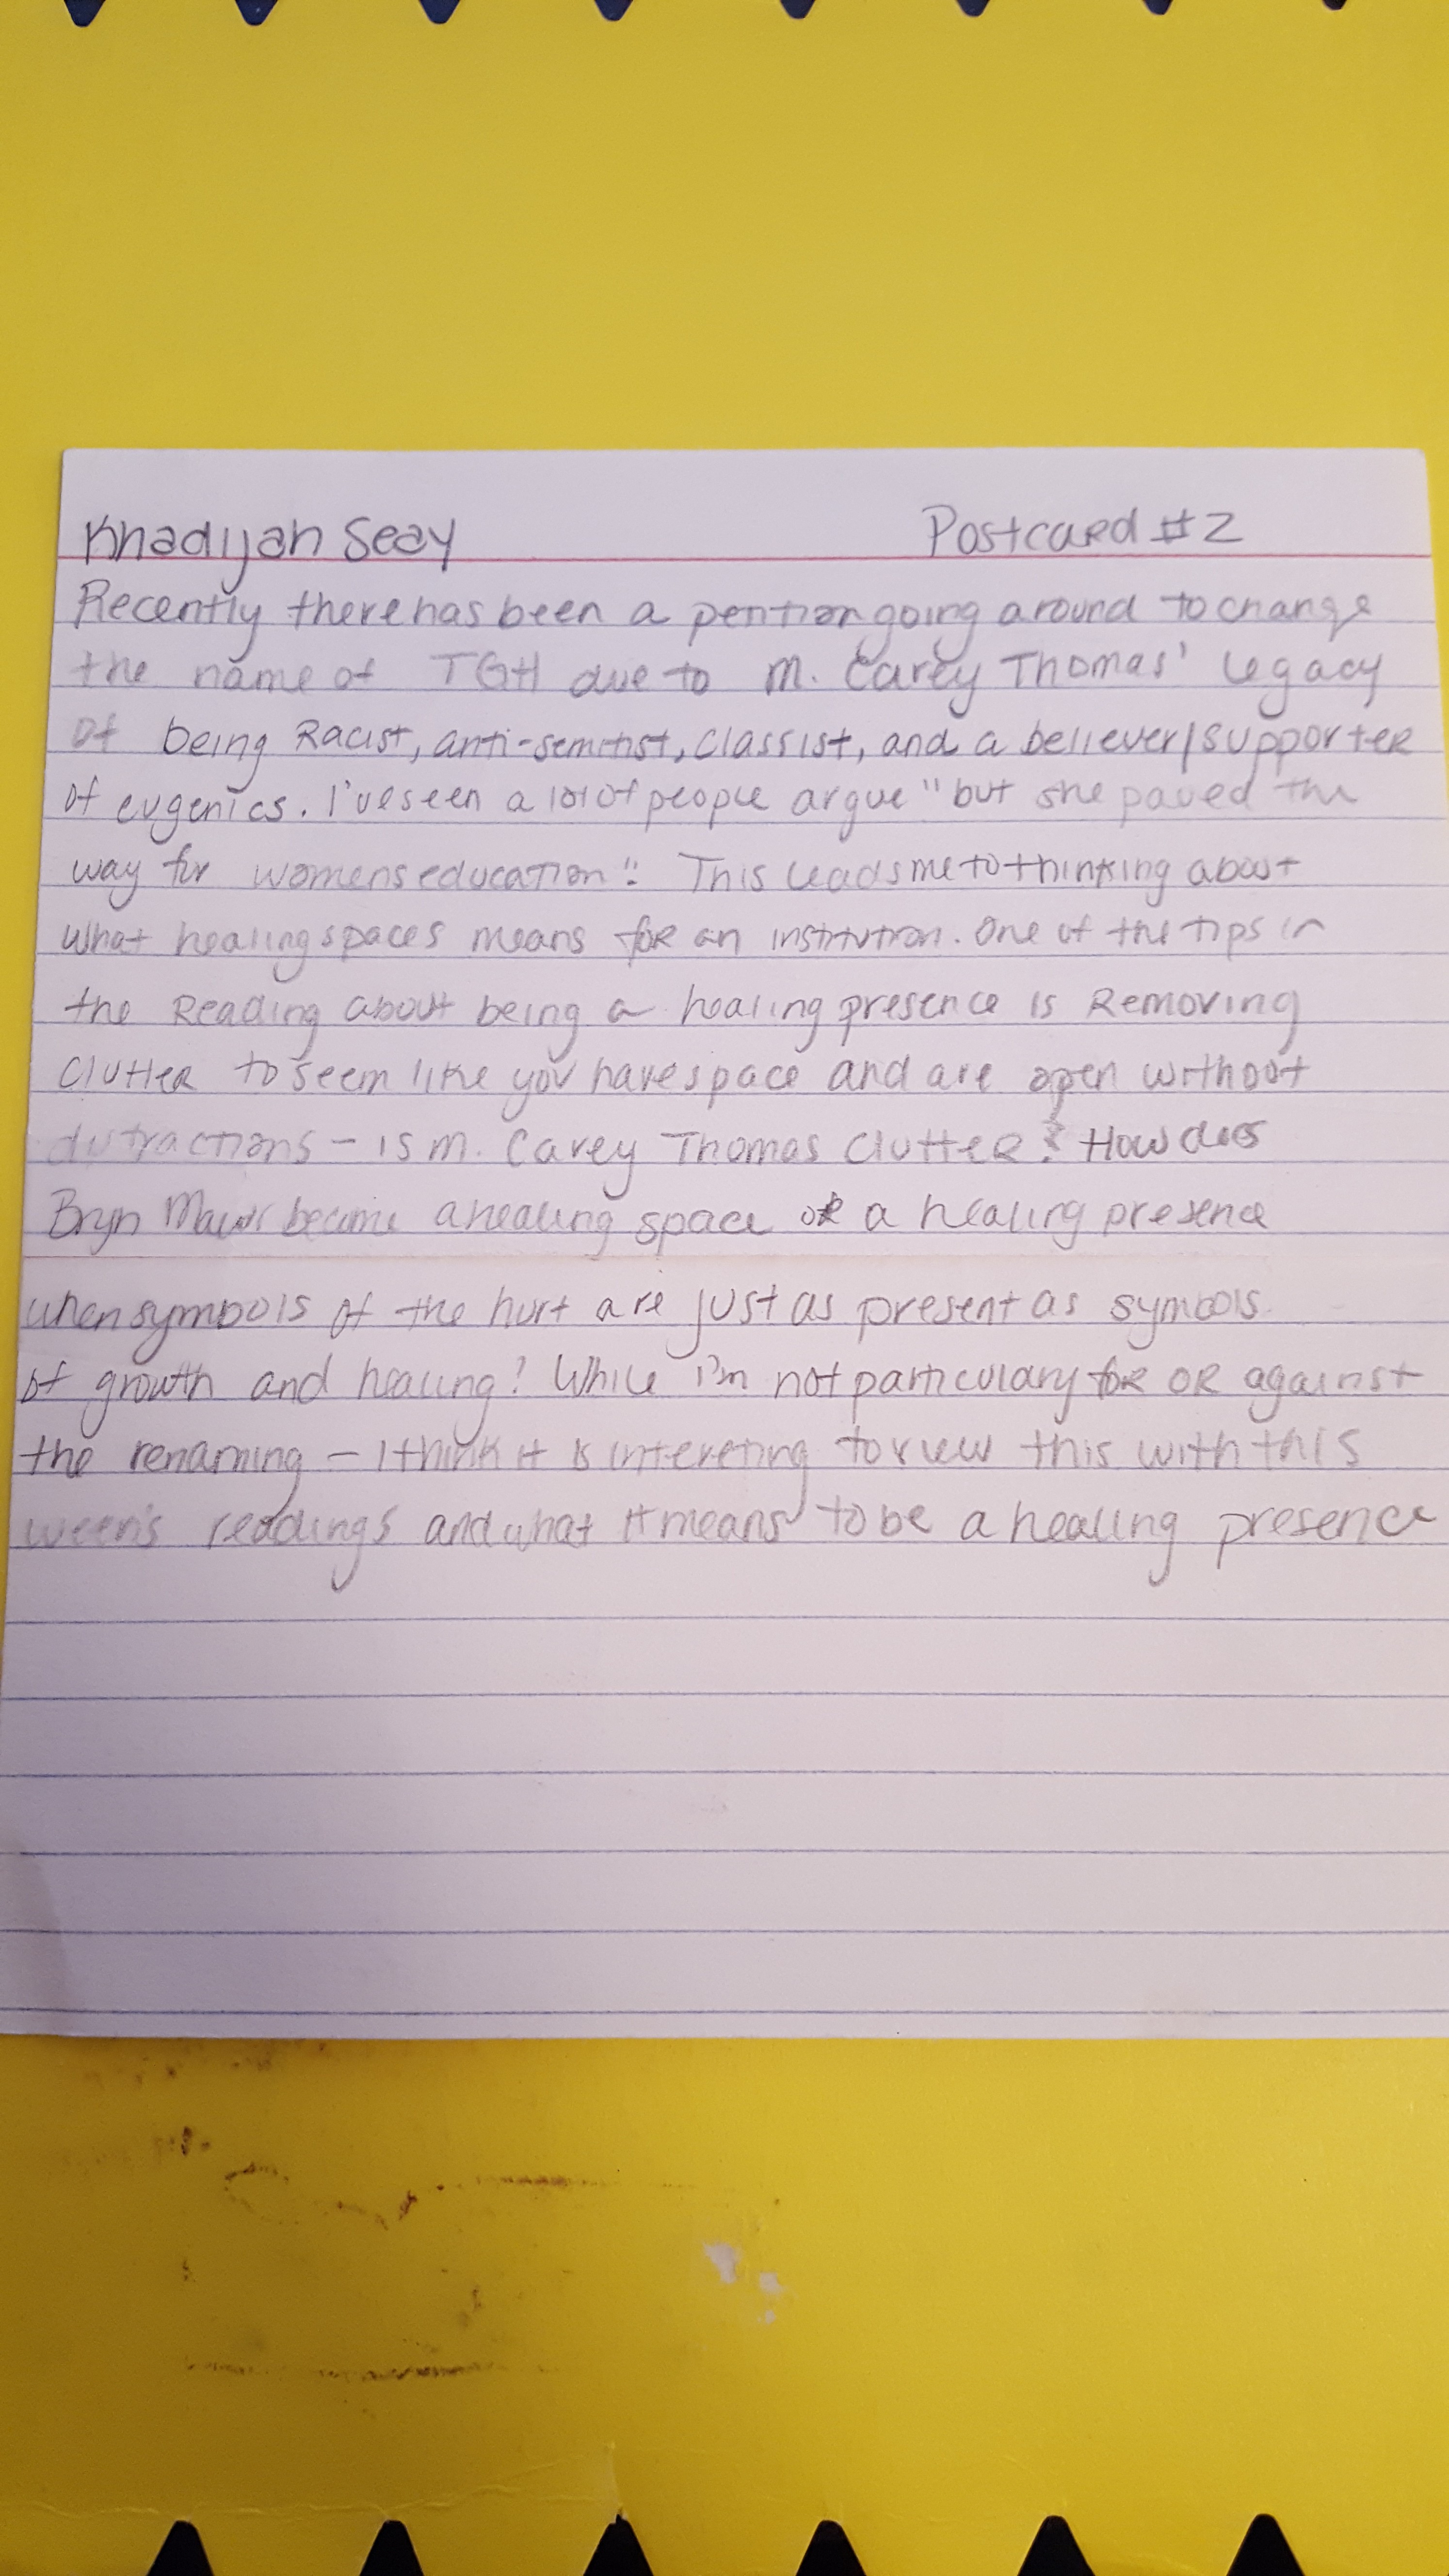 Khadijah Seay Postcard #2
Recently there has been a petition going around to change
the name of TGH due to M. Carey Thomas' legacy
of being Racist, anti-semitist, classist, and a believer/supporter
of eugenics. I've seen a lot of people argue "but she paved the
way for womens education". This leads me to thinking about
what healing spaces means for an institution. One of the tips in
the Reading about being a healing presence is Removing
clutter to seem like you have space and are open without
distractions - is M. Carey Thomas clutter? How does
Bryn Mawr become a healing space or a healing presence
when symbols of the hurt are just as present as symbols
of growth and healing? While i'm not particulary for or against
the renaming - I think it is intereting to view this with this
week's readings and what it means to be a healing presence